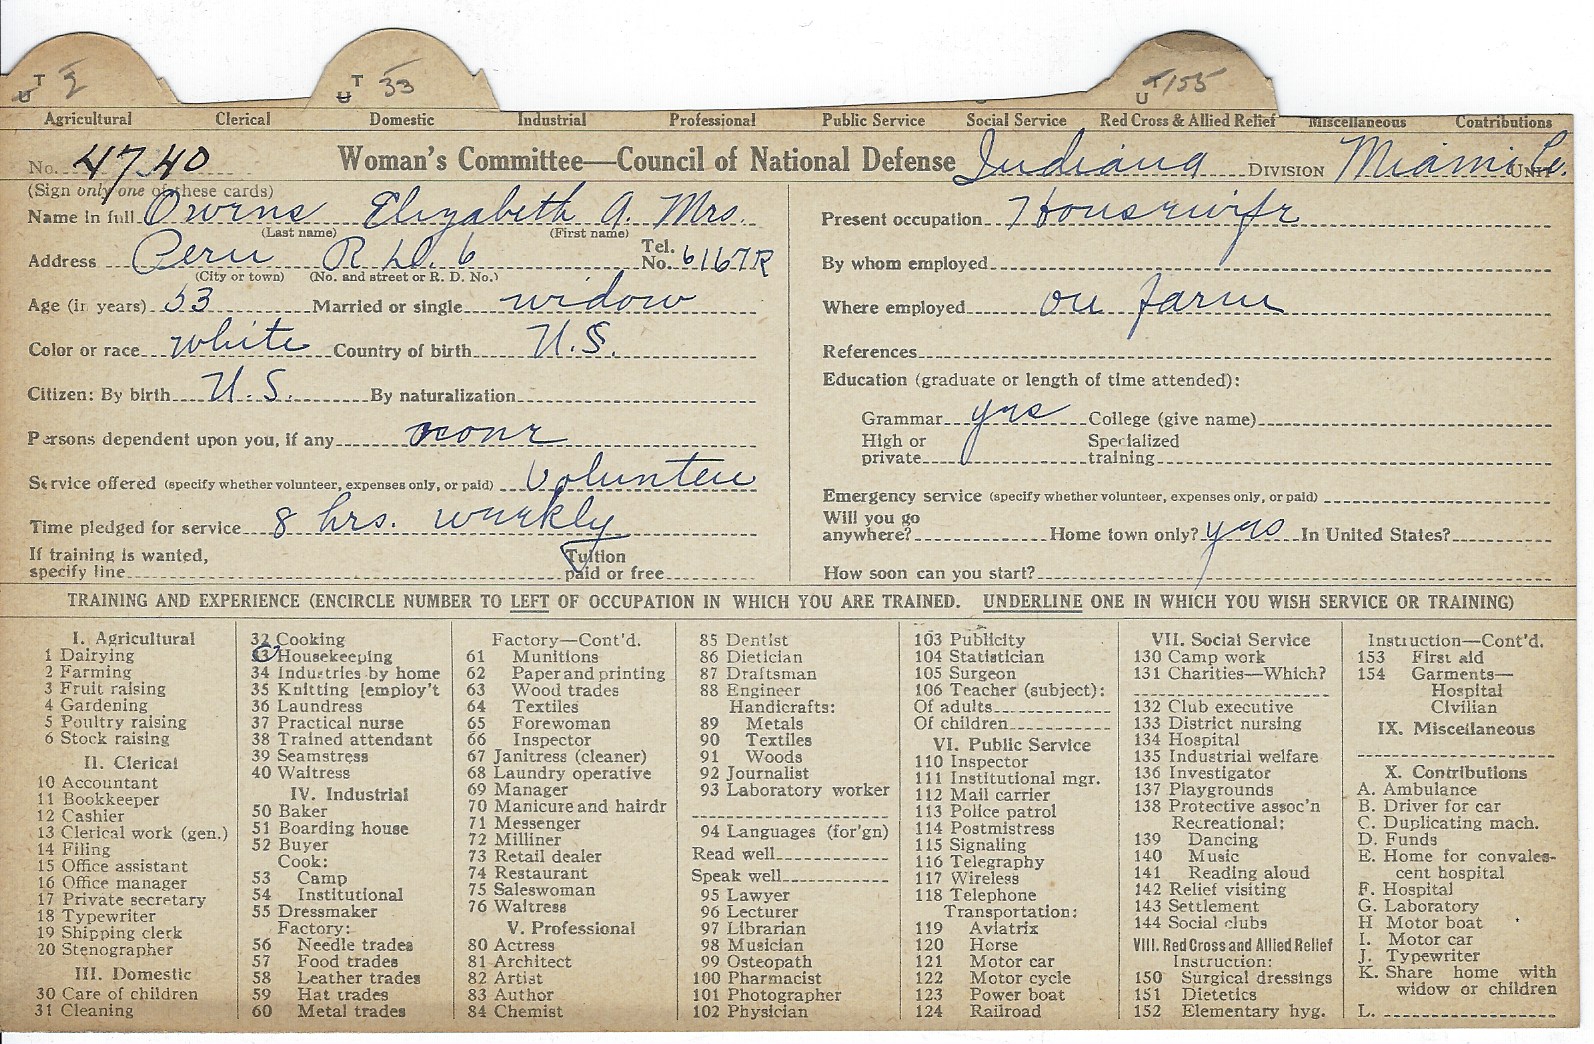 T U 2 T U 33 T U 155
Agricultural Clerical Domestic Industrial Professional Public Service Social Service Red Cross & Allied Relief Miscellaneous Contributions
No. 4740 Woman's Committee—Council of National Defense Indiana DIVISION Miami Co. UNIT
(Sign only one of these cards)
Name in full Owens Elizabeth A. Mrs.
(Last name) (First name)
Address Peru R.D. 6 Tel. No. 6167R
(City or town) (No. and street or R. D. No.)
Age (in years) 53 Married or single widow
Color or race white Country of birth U.S.
Citizen: By birth U.S. By naturalization
Persons dependent upon you, if any none
Service offered (specify whether volunteer, expenses only, or paid) Volunteer
Time pledged for service 8 hrs. weekly
If training is wanted, specify line Tuition paid or free
Present occupation Housewife
By whom employed
Where employed on farm
References
Education (graduate or length of time attended):
Grammar yes College (give name)
High or private Specialized training
Emergency service (specify whether volunteer, expenses only, or paid)
Will you go anywhere? Home town only? yes In United States?
How soon can you start?
TRAINING AND EXPERIENCE (ENCIRCLE NUMBER TO LEFT OF OCCUPATION IN WHICH YOU ARE TRAINED. UNDERLINE ONE IN WHICH YOU WISH SERVICE OR TRAINING)
I. Agricultural
1 Dairying
2 Farming
3 Fruit raising
4 Gardening
5 Poultry raising
6 Stock raising
II. Clerical
10 Accountant
11 Bookkeeper
12 Cashier
13 Clerical work (gen.)
14 Filing
15 Office assistant
16 Office manager
17 Private secretary
18 Typewriter
19 Shipping clerk
20 Stenographer
III. Domestic
30 Care of children
31 Cleaning
32 Cooking
33 Housekeeping
34 Industries by home
35 Knitting [employ't
36 Laundress
37 Practical nurse
38 Trained attendant
39 Seamstress
40 Waitress
IV. Industrial
50 Baker
51 Boarding house
52 Buyer
Cook:
53 Camp
54 Institutional
55 Dressmaker
Factory:
56 Needle trades
57 Food trades
58 Leather trades
59 Hat trades
60 Metal trades
Factory—Cont'd.
61 Munitions
62 Paper and printing
63 Wood trades
64 Textiles
65 Forewoman
66 Inspector
67 Janitress (cleaner)
68 Laundry operative
69 Manager
70 Manicure and hairdr
71 Messenger
72 Milliner
73 Retail dealer
74 Restaurant
75 Saleswoman
76 Waitress
V. Professional
80 Actress
81 Architect
82 Artist
83 Author
84 Chemist
85 Dentist
86 Dietician
87 Draftsman
88 Engineer
Handicrafts:
89 Metals
90 Textiles
91 Woods
92 Journalist
93 Laboratory worker
94 Languages (for'gn)
Read well
Speak well
95 Lawyer
96 Lecturer
97 Librarian
98 Musician
99 Osteopath
100 Pharmacist
101 Photographer
102 Physician
103 Publicity
104 Statistician
105 Surgeon
106 Teacher (subject):
Of adults
Of children
VI. Public Service
110 Inspector
111 Institutional mgr.
112 Mail carrier
113 Police patrol
114 Postmistress
115 Signaling
116 Telegraphy
117 Wireless
118 Telephone
Transportation:
119 Aviatrix
120 Horse
121 Motor car
122 Motor cycle
123 Power boat
124 Railroad
VII. Social Service
130 Camp work
131 Charities—Which?
132 Club executive
133 District nursing
134 Hospital
135 Industrial welfare
136 Investigator
137 Playgrounds
138 Protective assoc'n
Recreational:
139 Dancing
140 Music
141 Reading aloud
142 Relief visiting
143 Settlement
144 Social clubs
VIII. Red Cross and Allied Relief
Instruction:
150 Surgical dressings
151 Dietetics
152 Elementary hyg.
Instruction—Cont'd.
153 First aid
154 Garments—
Hospital
Civilian
IX. Miscellaneous
X. Contributions
A. Ambulance
B. Driver for car
C. Duplicating mach.
D. Funds
E. Home for convales-
cent hospital
F. Hospital
G. Laboratory
H Motor boat
I. Motor car
J. Typewriter
K. Share home with
widow or children
L.